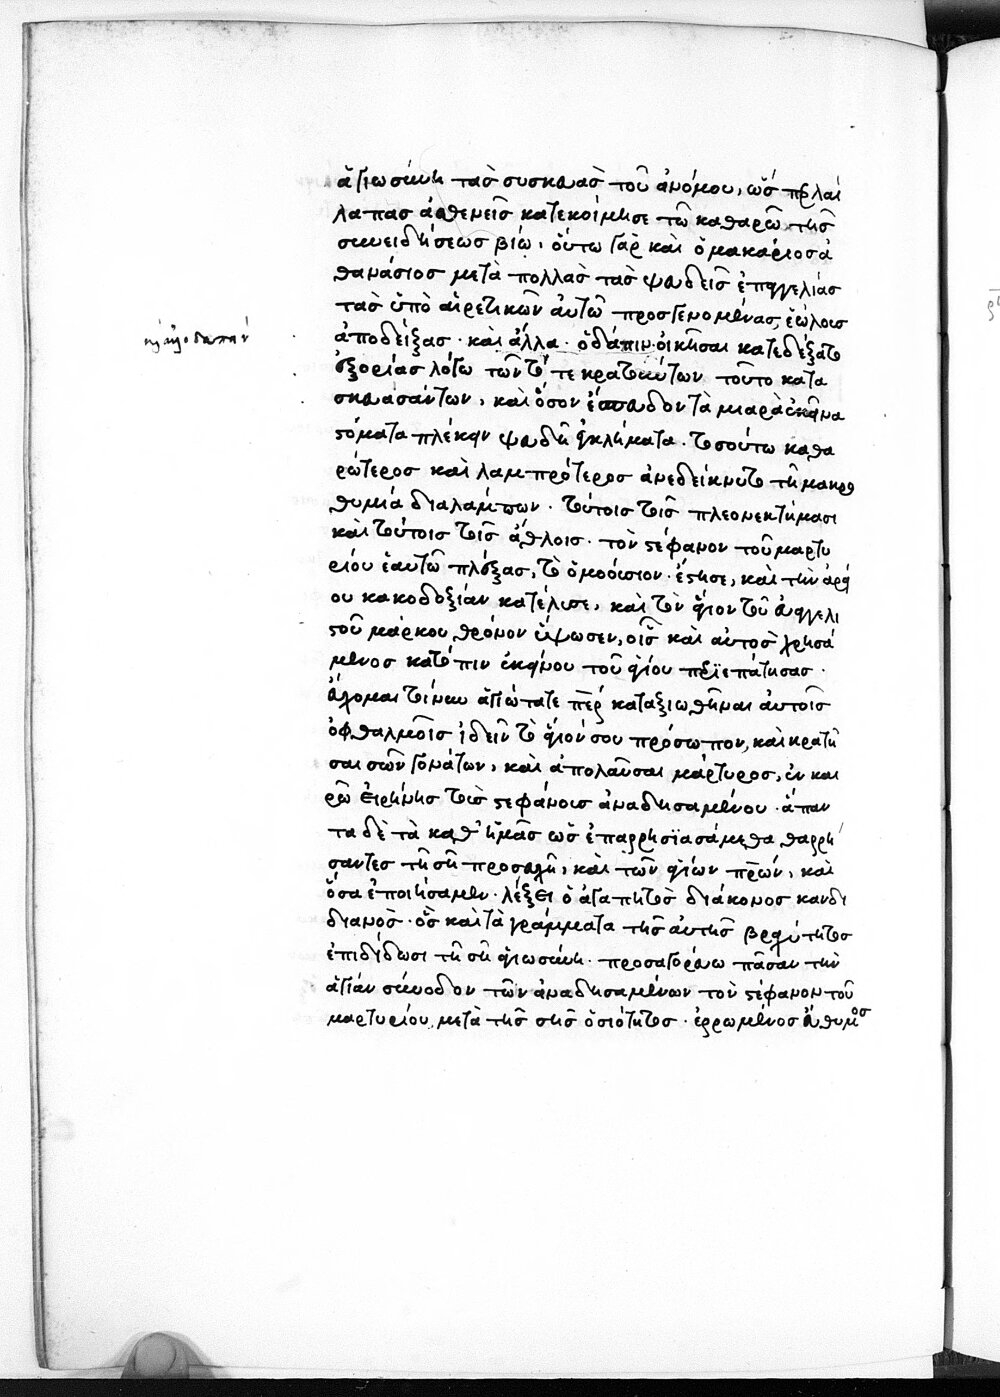 ἁγιωσύνη τὰσ συσκευὰσ τοῦ ἀνόμου, ὡσ
λαπασ ἀσθενεῖσ κατεκοίμησε τῶ καθαρῶ τῆσ
συνειδήσεωσ βίω, οὕτω γὰρ καὶ ὁ μακάριοσ ἀ
θανάσιοσ μετὰ πολλὰσ τὰσ ψευδεῖσ ἐπαγγελίασ
τὰσ ὑπὸ αἱρετικῶν αὐτῶ προσγενομένασ, ἑώλουσ
ἀποδείξασ · καὶ ἄλλα · οἰκῆσαι κατεδέξατο
ἐξορίασ λόγω τῶν τότε κρατούντων τοῦτο κατα
σκευασάντων, καὶ ὅσον ἔσπευδον τὰ μιαρὰ ἐκεῖνα
στόματα πλέκειν ψευδῆ ἐγκλήματα · τοσούτω καθα
ρώτεροσ καὶ λαμπρότεροσ ἀνεδείκνυτο τῆ μακρο
θυμία διαλάμπων · τούτοισ τοῖσ πλεονεκτήμασι
καὶ τούτοισ τοῖσ ἄθλοισ · τὸν στέφανον τοῦ μαρτυ
ρίου ἑαυτῶ πλέξασ, τὸ ὁμοούσιον · ἔστησε, καὶ τὴν ἀρεί
ου κακοδοξίαν κατέλυσε, καὶ τὸν ἅγιον τοῦ εὐαγγελι
στοῦ μάρκου θρόνον ὕψωσεν, οἷσ καὶ αὐτὸσ χρησά
μενοσ κατόπιν ἐκείνου τοῦ ἁγίου περιεπάτησασ ·
εὔχομαι τοίνυν ἁγιώτατε πάτερ καταξιωθῆναι αὐτοῖσ
ὀφθαλμοῖσ ἰδεῖν τὸ ἅγιόν σου πρόσωπον, καὶ κρατῆ
σαι σῶν γονάτων, καὶ ἀπολαῦσαι μάρτυροσ, ἐν και
ρῶ εἰρήνησ τοῖσ στεφάνοισ ἀναδησαμένου · ἅπαν
τα δὲ τὰ καθ' ἡμᾶσ ὡσ ἐπαρρησϊασάμεθα θαρρή
σαντεσ τῆ σῆ προσευχῆ, καὶ τῶν ἁγίων πρων, καὶ
ὅσα ἐποιήσαμεν · λέξει ὁ ἀγαπητὸσ διάκονοσ κανδι
διανὸσ · ὃσ καὶ τὰ γράμματα τῆσ αὐτῆσ βραχύτητοσ
ἐπιδίδωσι τῆ σῆ ἁγιωσύνη · προσαγορεύω πᾶσαν τὴν
ἁγίαν σύνοδον τῶν ἀναδησαμένων τὸν στέφανον τοῦ
μαρτυρίου, μετὰ τῆσ σῆσ ὁσιότητοσ · ἐρρωμένοσ